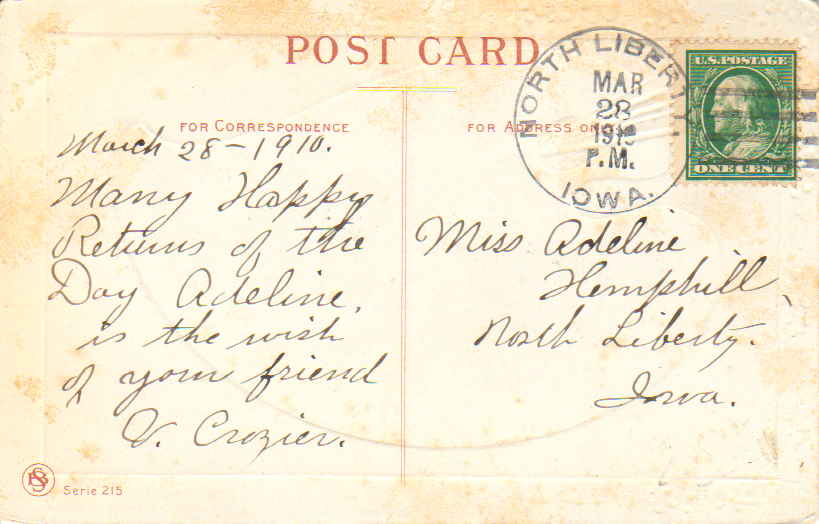 POST CARD
FOR CORRESPONDENCE
FOR ADDRESS ONLY
NORTH LIBERTY,
IOWA.
MAR
28
1910
P.M.
U.S. POSTAGE
ONE CENT
March 28-1910.
Many Happy
Returns of the
Day Adeline,
is the wish
of your friend
V. Crozier.
Miss Adeline
Hemphill,
North Liberty.
Iowa.
Serie 215